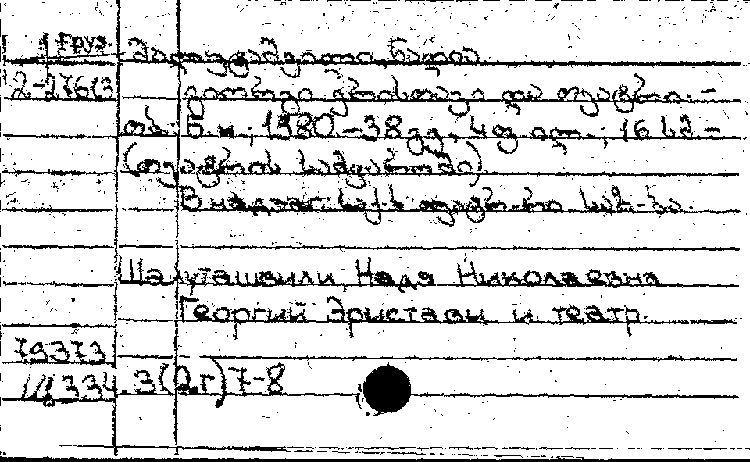 Груз. შალუტაშვილი, ნადია
2-27613 გიორგი ერისთავი და თეატრი. –
თბ: Б.и., 1980. – 38 გვ., 4 ფ. ილ.; 16 სმ –
(თეატრის სამყაროში)
В надзаг: საქ. სს თეატრ. საზ-ბა.
Шалуташвили, Надя Николаевна
Георгий Эристави и театр.
79373
334.3(2Г)7-8